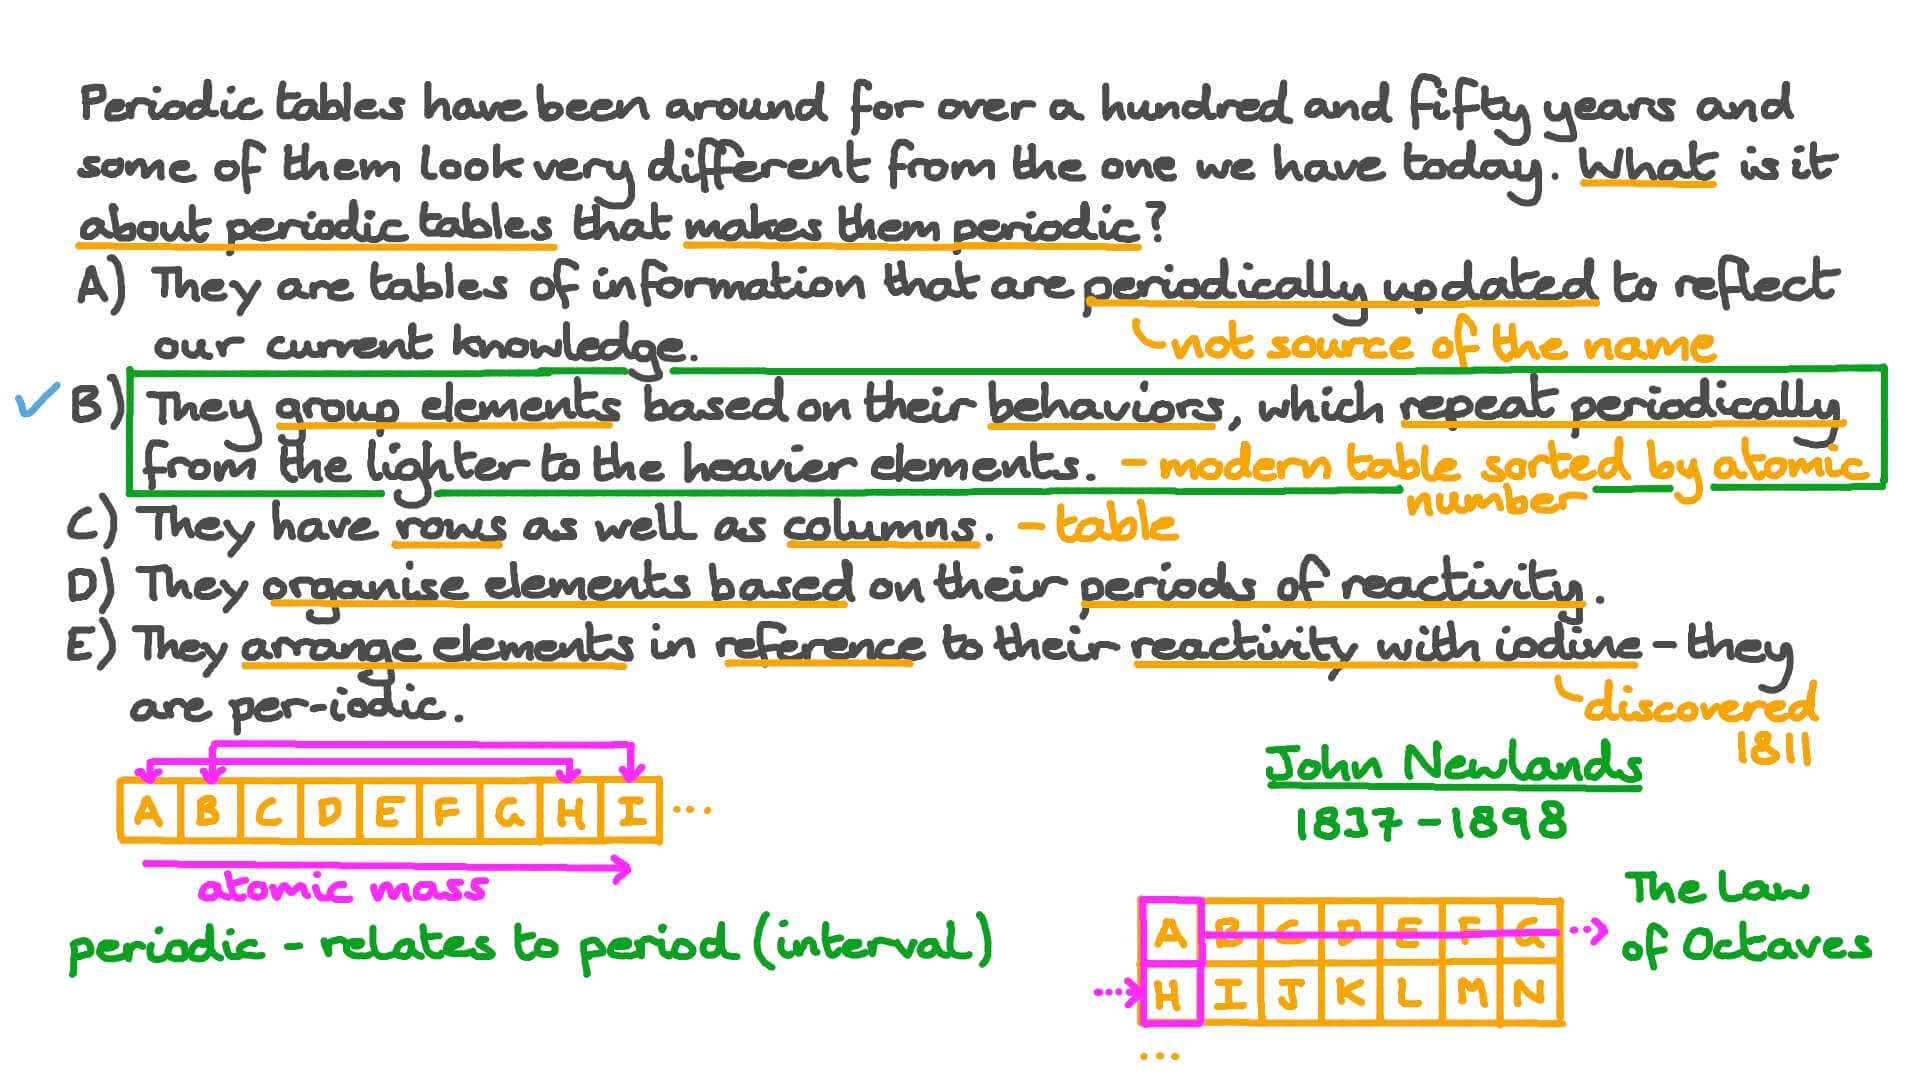 Periodic tables have been around for over a hundred and fifty years and
some of them look very different from the one we have today. What is it
about periodic tables that makes them periodic?
A) They are tables of information that are periodically updated to reflect
our current knowledge.
not source of the name
B) They group elements based on their behaviors, which repeat periodically
from the lighter to the heavier elements. - modern table sorted by atomic
number
C) They have rows as well as columns. - table
D) They organise elements based on their periods of reactivity.
E) They arrange elements in reference to their reactivity with iodine - they
are per-iodic.
discovered
1811
John Newlands
1837 - 1898
A B C D E F G H I ...
atomic mass
periodic - relates to period (interval)
The Law
of Octaves
A B C D E F G
H I J K L M N
...